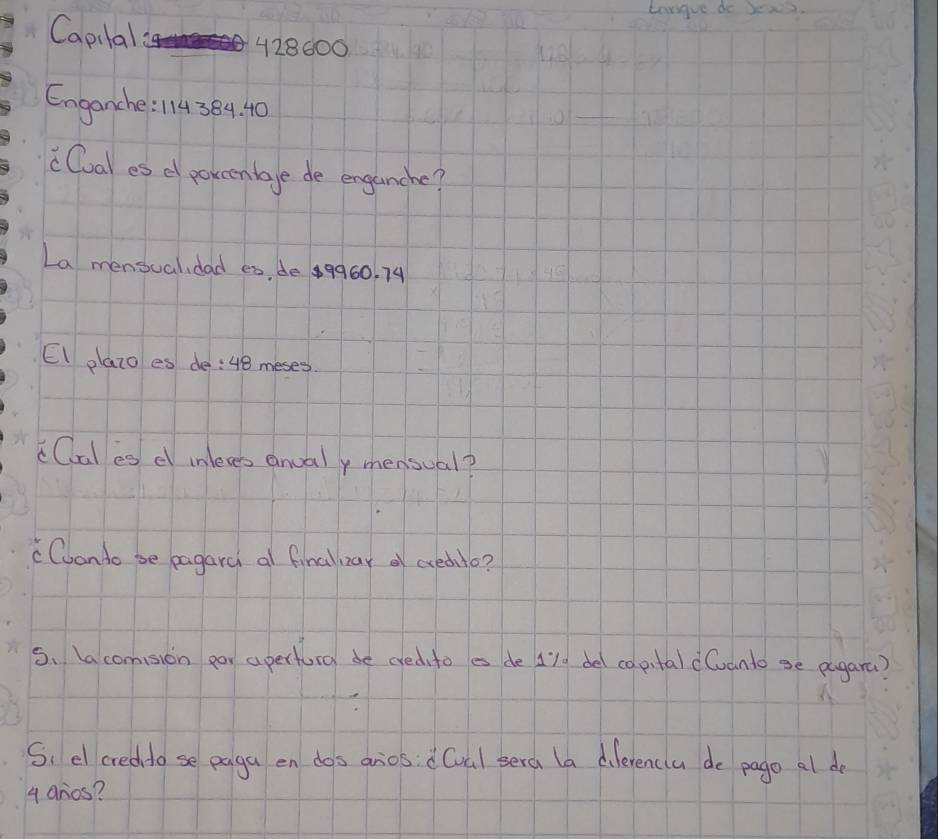 Capital: 428600
Enganche: 114384.40
¿Cual es el porcentaje de enganche?
La mensualidad es. de $9960.74
El plazo es de: 48 meses.
¿Cual es el interes anual y mensual?
¿Cuanto se pagará al finalizar el credito?
Si la comisión por apertura de credito es de 1% del capital ¿Cuanto se pagara?
Si el credito se paga en dos años: ¿Cual sera la diferencia de pago al de
4 años?